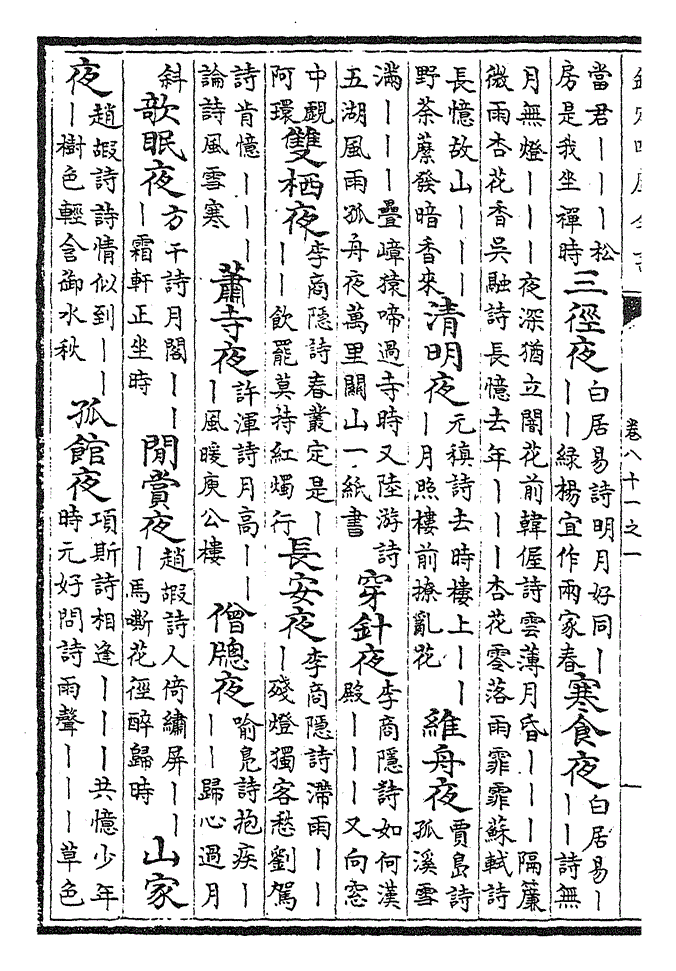 卷八十一之一
當君｜｜｜松
房是我坐禪時
三徑夜
白居易詩明月好同｜
｜｜綠楊宜作兩家春
寒食夜
白居易｜
｜｜詩無
月無燈｜｜｜夜深猶立闇花前韓偓詩雲薄月昏｜｜｜隔簾
微雨杏花香吳融詩長憶去年｜｜｜杏花零落雨霏霏蘇軾詩
長憶故山｜｜｜
野荼蘼發暗香來
清明夜
元稹詩去時樓上｜｜
｜月照樓前撩亂花
維舟夜
賈島詩
孤溪雪
滿｜｜｜疊嶂猿啼過寺時又陸游詩
五湖風雨孤舟夜萬里關山一紙書
穿針夜
李商隱詩如何漢
殿｜｜｜又向窓
中覷
阿環
雙栖夜
李商隱詩春叢定是｜
｜｜飲罷莫持紅燭行
長安夜
李商隱詩滯雨｜｜
｜殘燈獨客愁劉駕
詩肯憶｜｜｜
論詩風雪寒
蕭寺夜
許渾詩月高｜｜
｜風暖庾公樓
僧牕夜
喻鳧詩抱疾｜
｜｜歸心過月
斜
欹眠夜
方干詩月閣｜｜
｜霜軒正坐時
閒賞夜
趙嘏詩人倚繡屏｜｜
｜馬嘶花徑醉歸時
山家
夜
趙嘏詩詩情似到｜｜
｜樹色輕含御水秋
孤館夜
項斯詩相逢｜｜｜共憶少年
時元好問詩雨聲｜｜｜草色